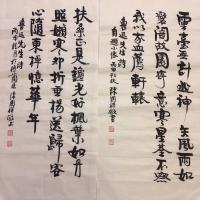 靈臺無計逃神矢風雨如
磐闇故園寄意寒星荃不察
我以我血薦軒轅
魯迅先生詩
自題小像
扶桑正是秋光好楓葉如丹
照嫩寒却折垂楊送歸客
心隨東棹憶華年
魯迅先生詩